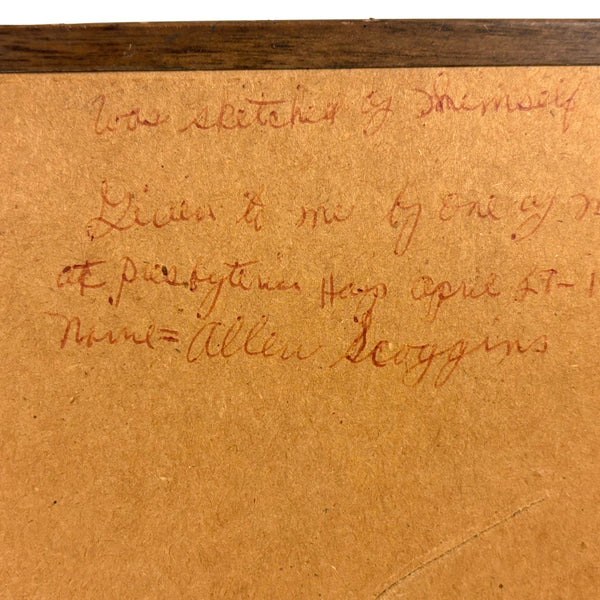 Was sketched of himself
Given to me by one of m
at Presbyterian Hosp April 27-1
Name = Allen Scoggins